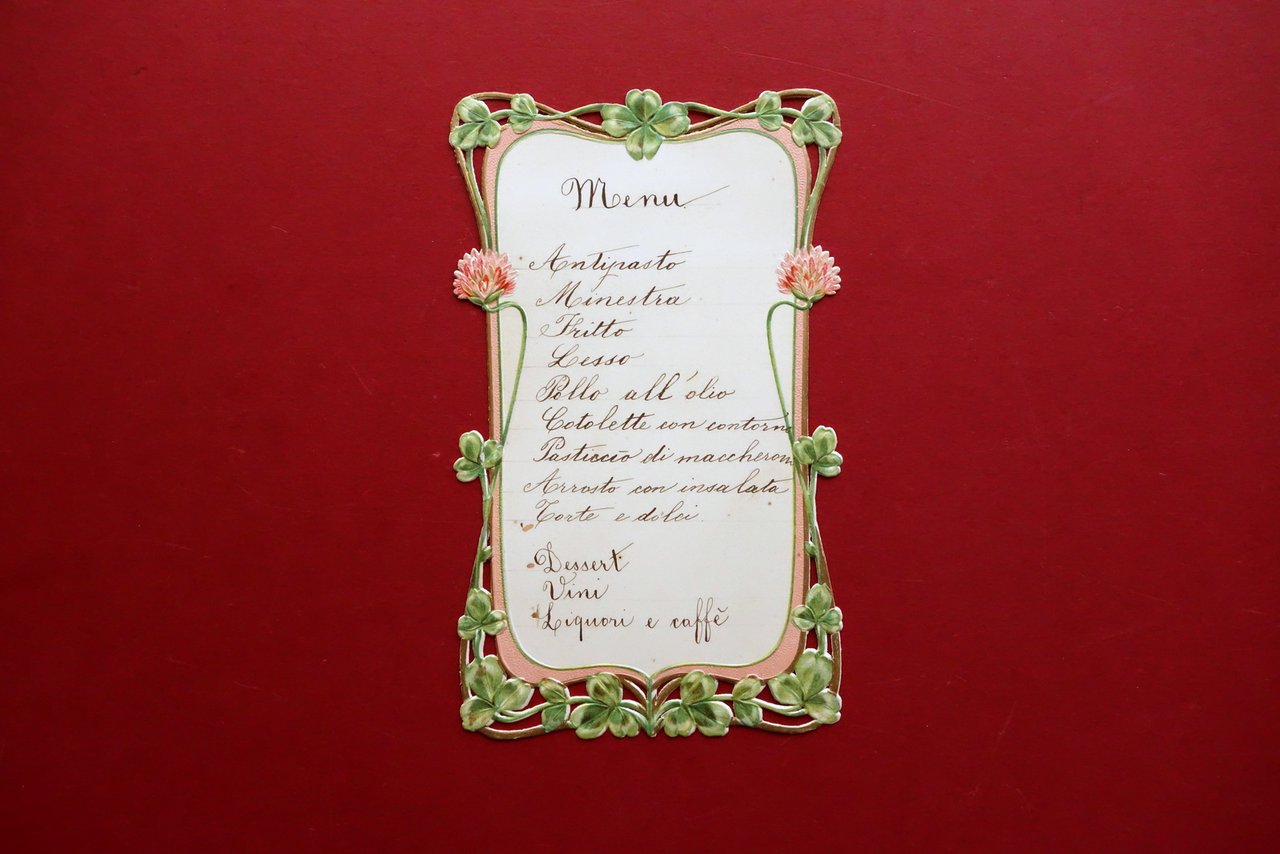 Menu
Antipasto
Minestra
Fritto
Lesso
Pollo all'olio
Cotolette con contorno
Pasticcio di maccheroni
Arrosto con insalata
Torte e dolci
Dessert
Vini
Liquori e caffè